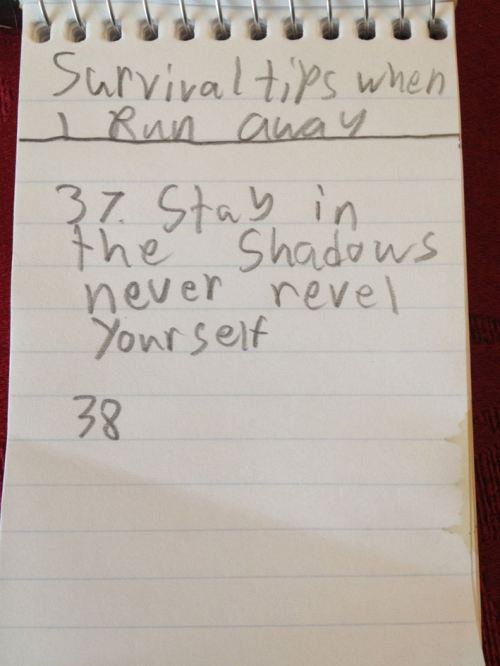 Survival tips when
I Run away
37. Stay in
the Shadows
never revel
yourself
38